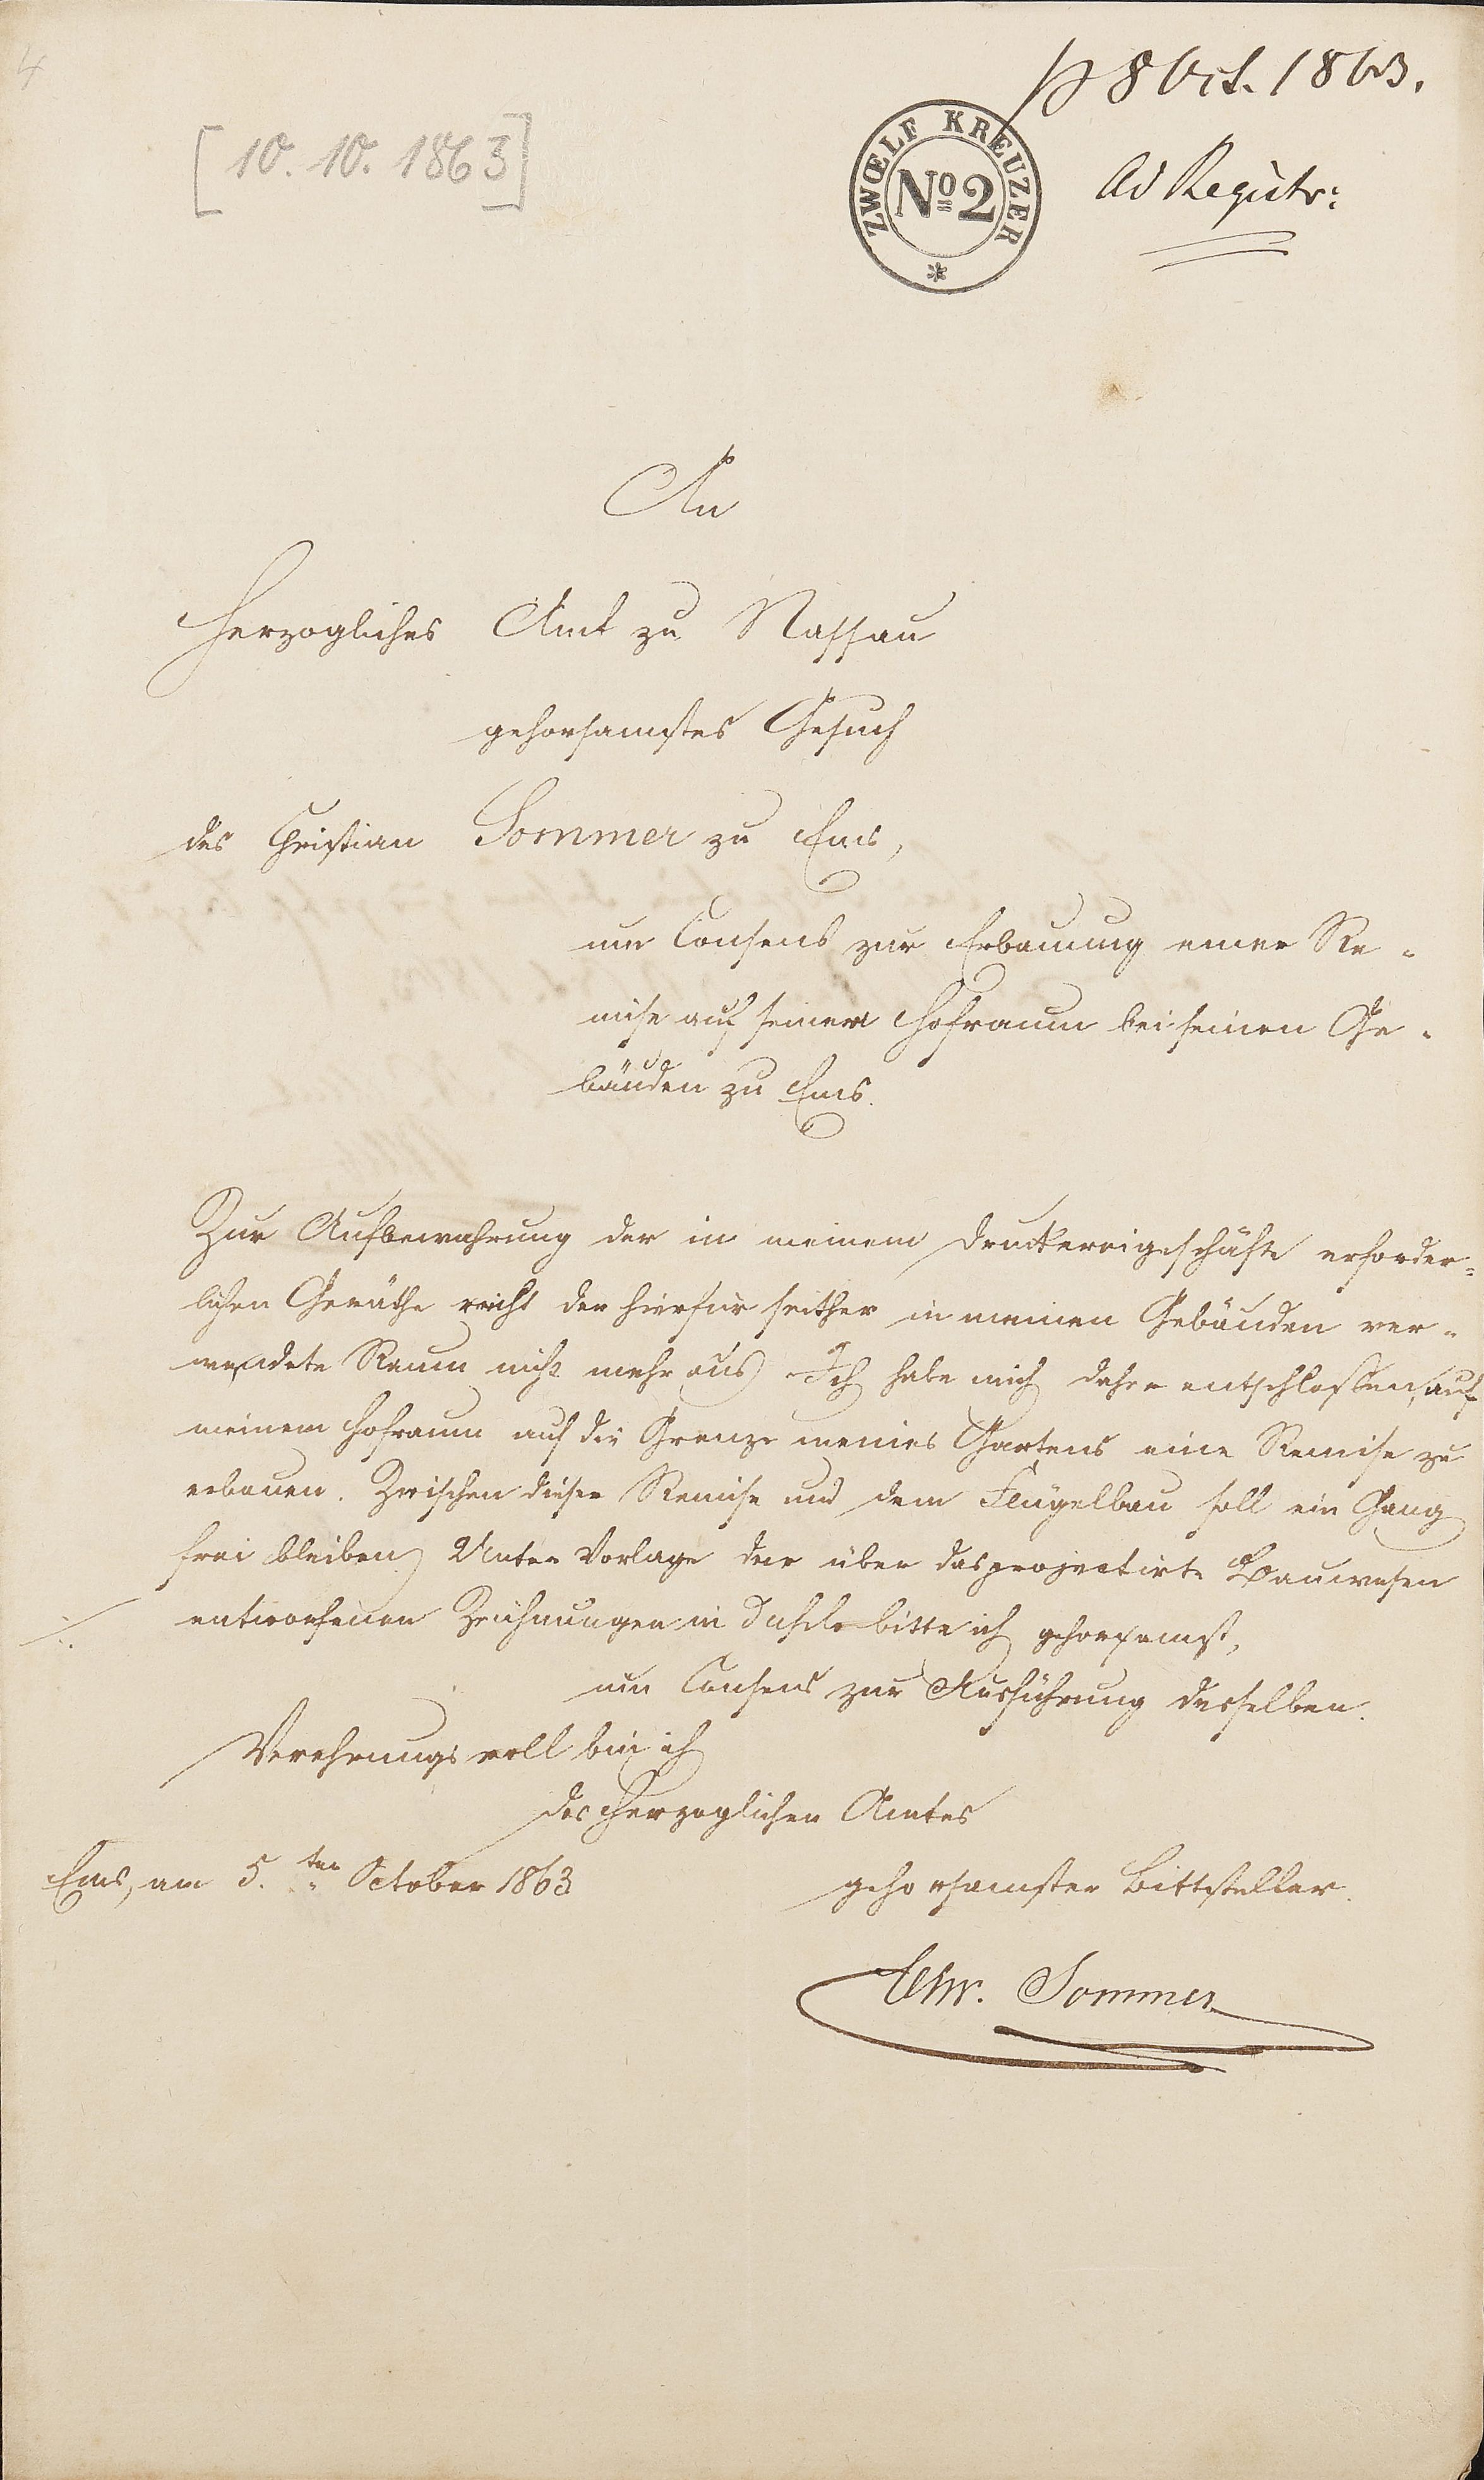 4
8 Oct. 1863.
[10. 10. 1863]
ZWŒLF KREUZER
No 2
Ad Registr:
An
Herzogliches Amt zu Nassau
gehorsamstes Gesuch
des Christian Sommer zu Ems,
um Consens zur Erbauung einer Re-
mise auf seinem Hofraum bei seinen Ge-
bäuden zu Ems.
Zur Aufbewahrung der in meinem Druckereigeschäfte erforder-
lichen Geräthe reicht der hierfür seither in meinen Gebäuden ver-
wendete Raum nicht mehr aus. Ich habe mich daher entschlossen, auf
meinem Hofraum auf die Grenze meines Gartens eine Remise zu
erbauen. Zwischen dieser Remise und dem Flügelbau soll ein Gang
frei bleiben. Unter Vorlage der über das projectirte Bauwesen
entworfenen Zeichnungen in duplo bitte ich gehorsamst,
um Consens zur Ausführung desselben.
Verehrungsvoll bin ich
des Herzoglichen Amtes
Ems, am 5.ten October 1863
gehorsamster Bittsteller.
Chr. Sommer